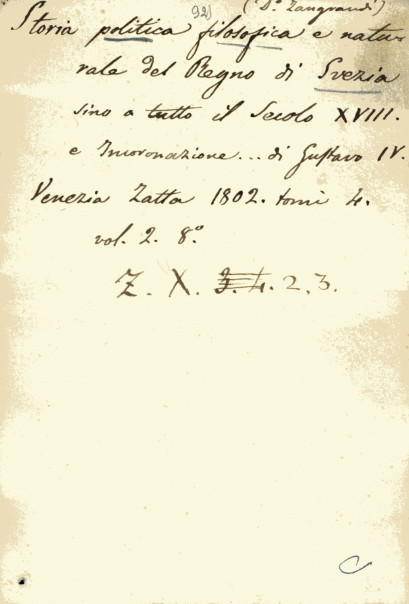 92) (D.º Zangrandi)
Storia politica filosofica e natu-
rale del Regno di Svezia
sino a tutto il Secolo XVIII.
e Incoronazione... di Gustavo IV.
Venezia Zatta 1802. tomi 4.
vol. 2. 8º.
Z. X. 3. 4. 2. 3.
C